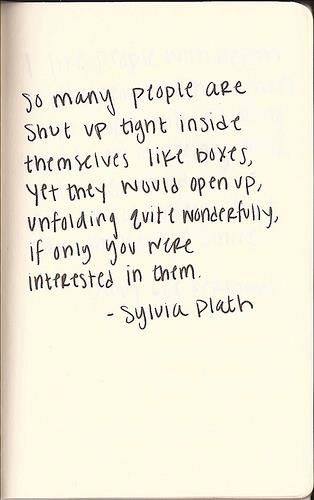 So many people are
shut up tight inside
themselves like boxes,
yet they would open up,
unfolding quite wonderfully,
if only you were
interested in them.
- Sylvia Plath